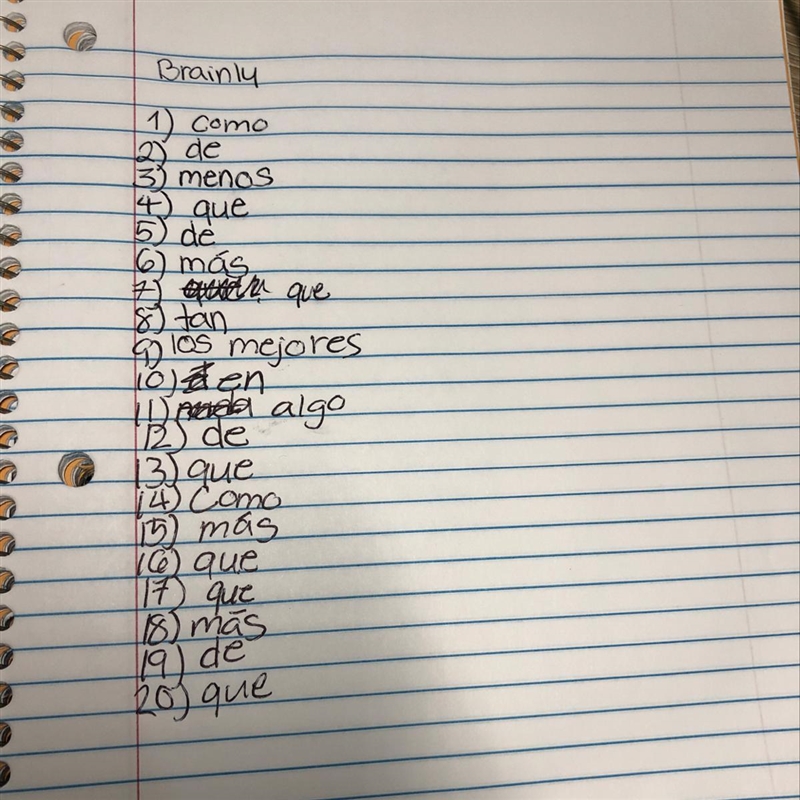 Brainly
1) como
2) de
3) menos
4) que
5) de
6) más
7) que
8) tan
9) los mejores
10) en
11) algo
12) de
13) que
14) Como
15) más
16) que
17) que
18) más
19) de
20) que